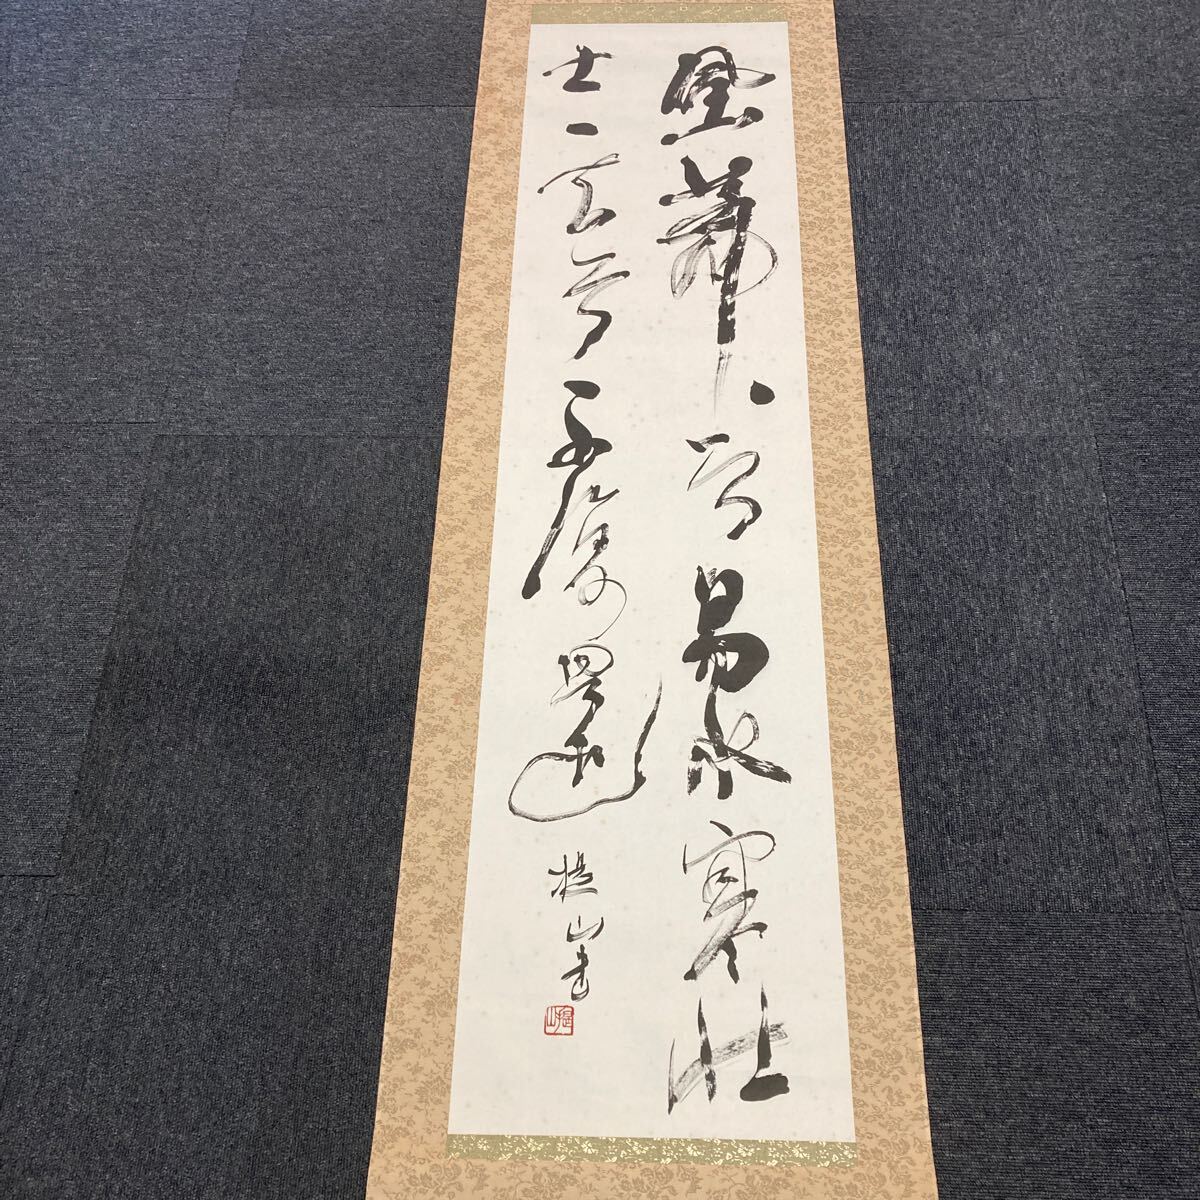 風蕭々兮易水寒壮
士一去兮不復還
提山書
提山